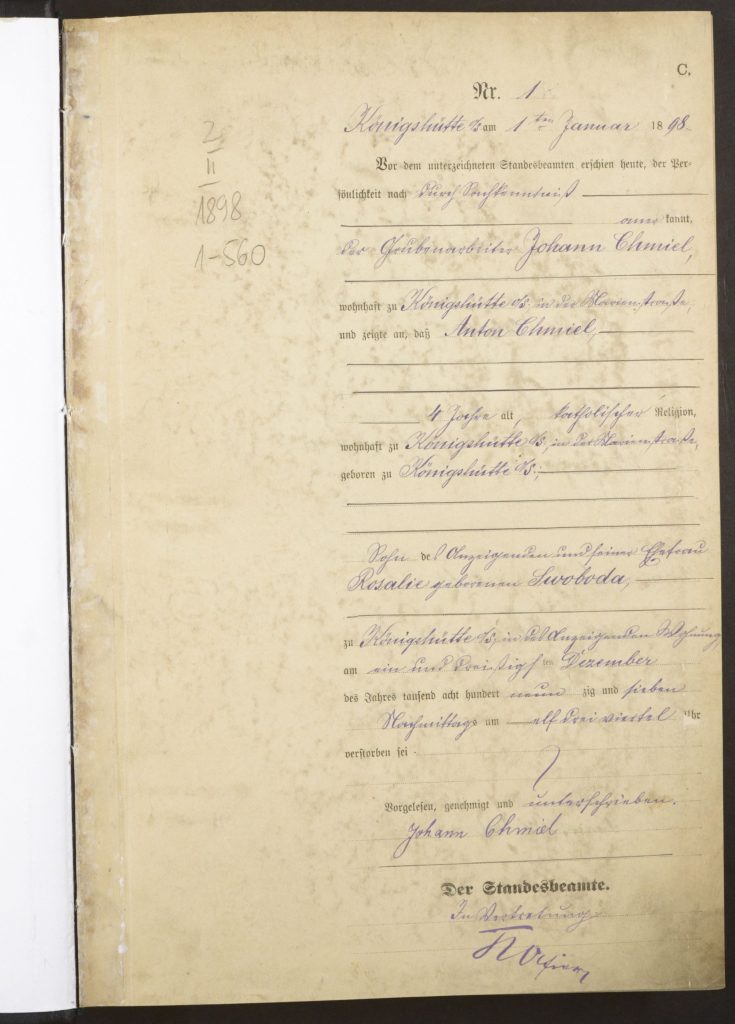 C.
Nr. 1
Königshütte O/S am 1ten Januar 1898
Vor dem unterzeichneten Standesbeamten erschien heute, der Per-
sönlichkeit nach durch Sachkenntniß
aner kannt,
der Grubenarbeiter Johann Chmiel,
wohnhaft zu Königshütte O/S, in der Marienstraße,
und zeigte an, daß Anton Chmiel,
4 Jahre alt, katholischer Religion,
wohnhaft zu Königshütte O/S, in der Marienstraße,
geboren zu Königshütte O/S,
Sohn des Anzeigenden und seiner Ehefrau
Rosalie geborenen Swoboda,
zu Königshütte O/S, in des Anzeigenden Wohnung
am ein und dreißigsten Dezember
des Jahres tausend acht hundert neun zig und sieben
Nachmittags um elf drei viertel Uhr
verstorben sei.
Vorgelesen, genehmigt und unterschrieben.
Johann Chmiel
Der Standesbeamte.
In Vertretung
2
II
1898
1-560